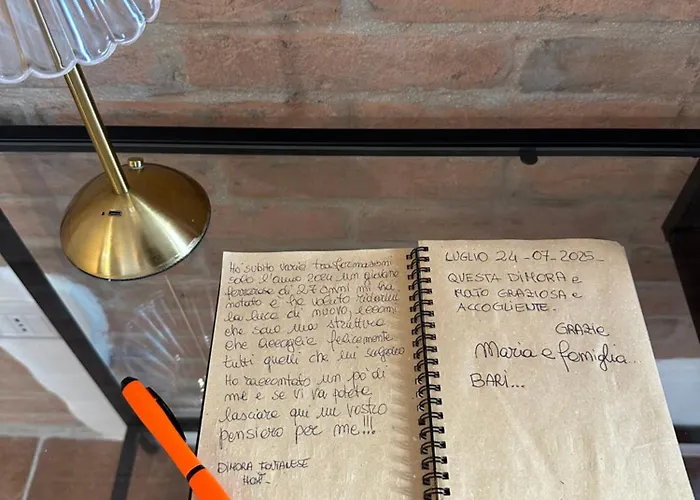 Ho subito varie trasformazioni
solo l'anno 2024 un giovane
ferrarese di 27 anni mi ha
notato e ha voluto ridarmi
la luce di nuovo, eccomi
che sono una struttura
che accoglie felicemente
tutti quelli che mi scelgono
Ho raccontato un po' di
me e se vi va potete
lasciare qui un vostro
pensiero per me!!!
DIMORA
HOST-
LUGLIO 24-07-2025-
QUESTA DIMORA e
MOLTO GRAZIOSA e
ACCOGLIENTE.
GRAZIE
Maria e famiglia...
BARI...